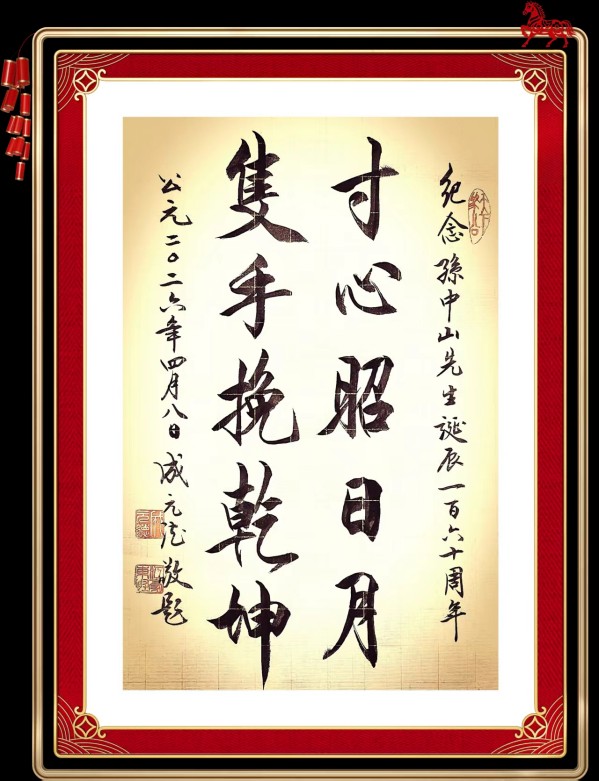 紀念孫中山先生誕辰一百六十周年
寸心昭日月
隻手挽乾坤
公元二〇二六年四月八日 成元liu敬題